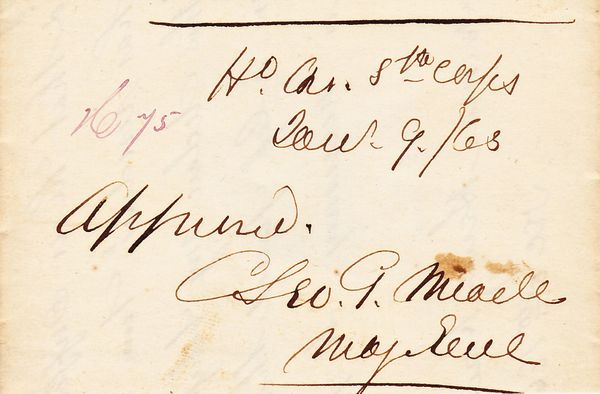 Hd. Qrs. 5th Corps
Jany. 9. /63
75
Approved.
Geo. G. Meade
Maj Genl